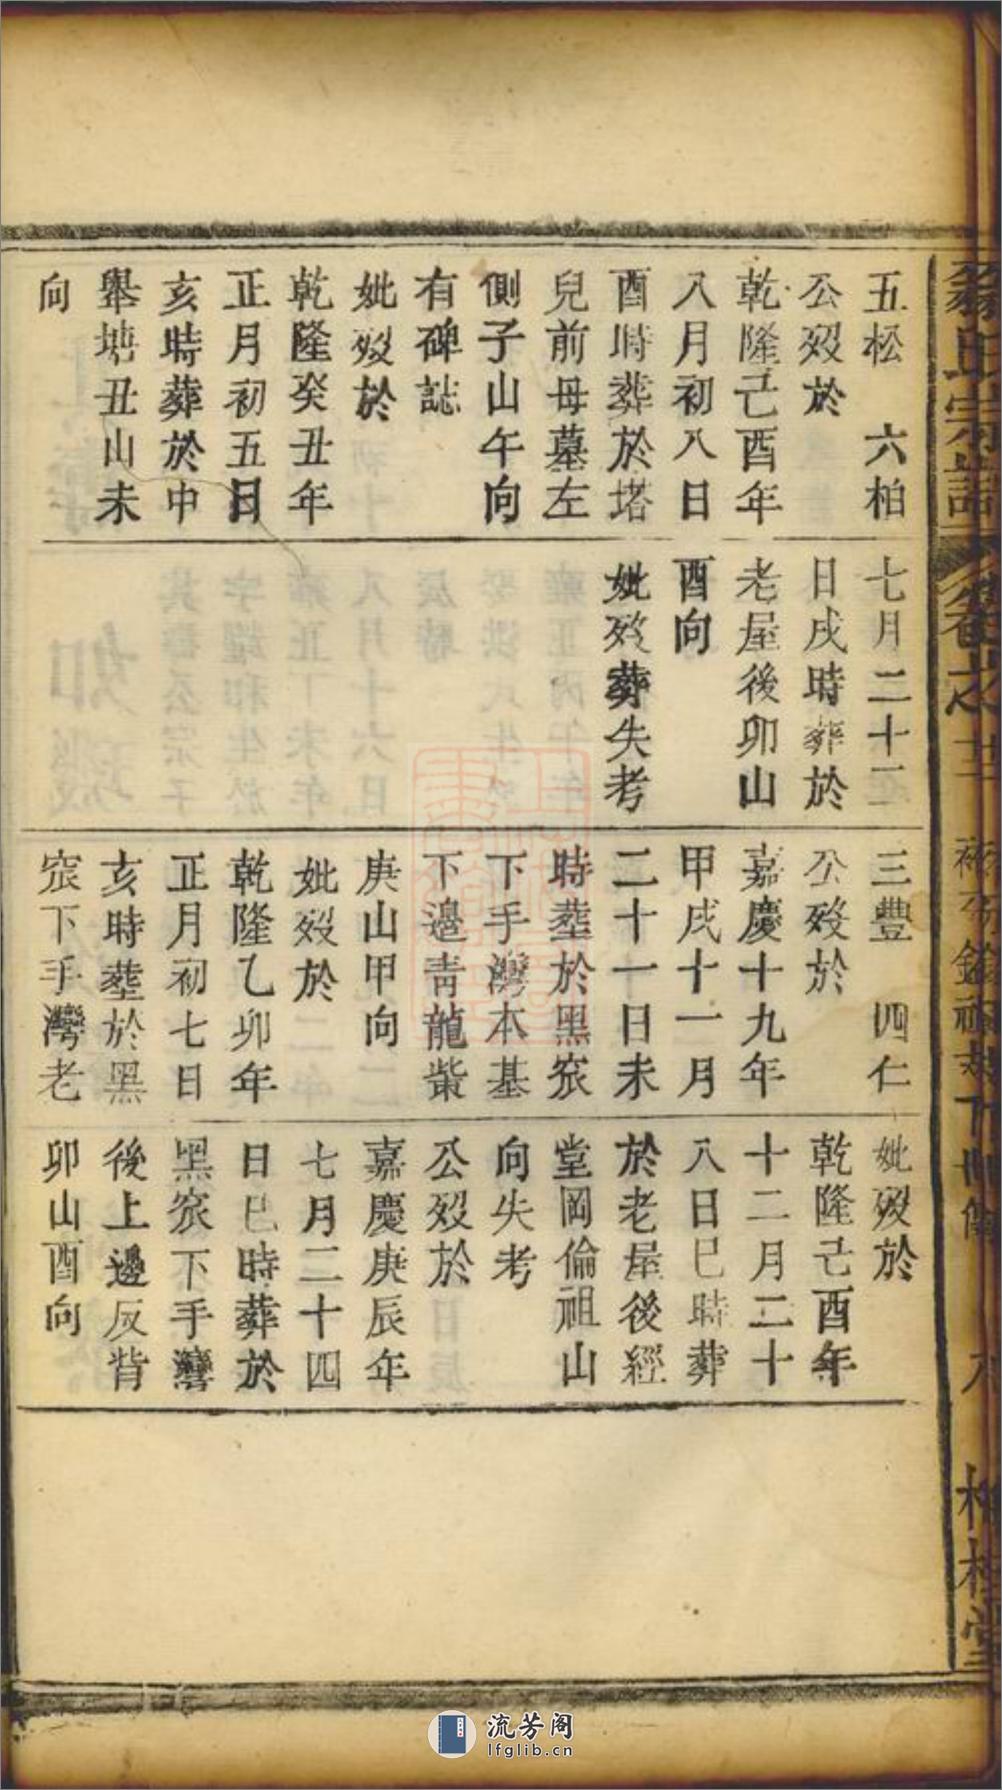 五松　六柏
公殁於
乾隆己酉年
八月初八日
酉時葬於塔
兒前母墓左
側子山午向
有碑誌
妣殁於
乾隆癸丑年
正月初五日
亥時葬於中
舉塘丑山未
向
七月二十二
日戌時葬於
老屋後卯山
酉向
妣殁葬失考
三豐　四仁
公殁於
嘉慶十九年
甲戌十一月
二十一日未
時塟於黑窊
下手灣本基
下邉青龍嘴
庚山甲向
妣殁於
乾隆乙卯年
正月初七日
亥時塟於黑
窊下手灣老
妣殁於
乾隆己酉年
十二月二十
八日巳時葬
於老屋後經
堂岡倫祖山
向失考
公殁於
嘉慶庚辰年
七月二十四
日巳時葬於
黑窊下手灣
後上邊反背
卯山酉向
氏宗譜
卷之
八
桂堂
流芳阁
lfglib.cn